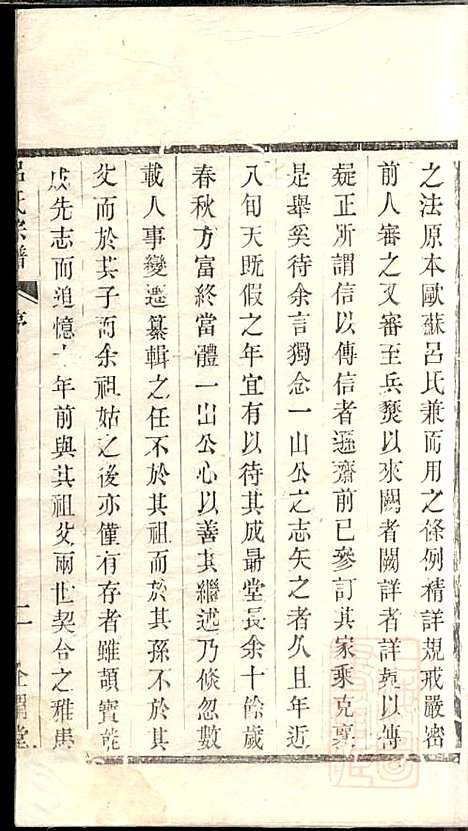 之法原本歐蘇呂氏兼而用之條例精詳規戒嚴密
前人審之又審至兵燹以來闕者闕詳者詳疑以傳
疑正所謂信以傳信者遜齋前已參訂其家乘克襄
是舉奚待余言獨念一山公之志矢之者久且年近
八旬天既假之年宜有以待其成勗堂長余十餘歲
春秋方富終當體一山公心以善其繼述乃倏忽數
載人事變遷纂輯之任不於其祖而於其孫不於其
父而於其子而余祖姑之後亦僅有存者雖頡實能
成先志而追憶十年前與其祖父兩世契合之雅焉
呂氏宗譜
序
二